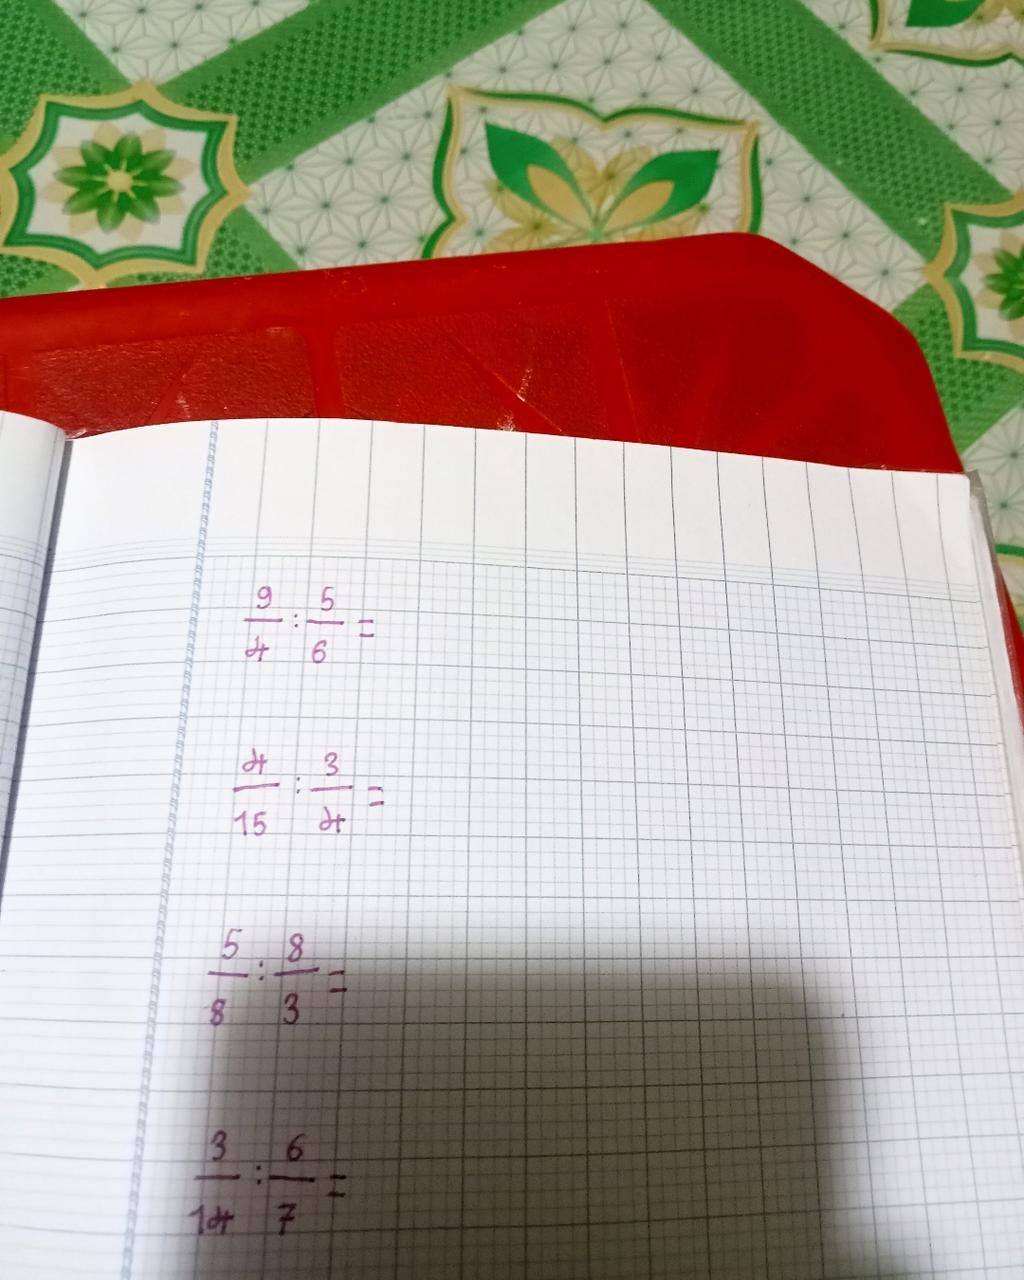 9/4 : 5/6 =
4/15 : 3/4 =
5/8 : 8/3 =
3/14 : 6/7 =